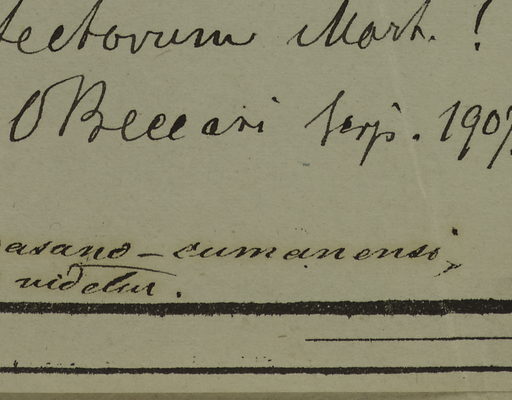 tectorum Mart. !
O Beccari scrips. 1907
asano - cumanensi,
videtur.